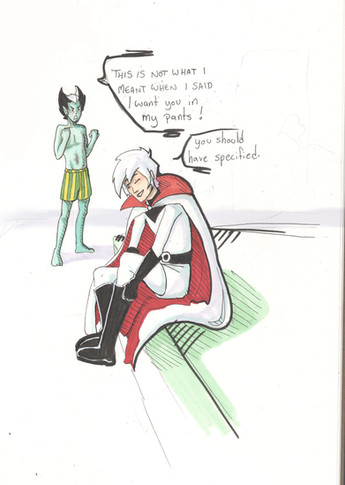 THIS IS NOT WHAT I
MEANT WHEN I SAID
I WANT YOU IN
MY PANTS!
you should
have specified.